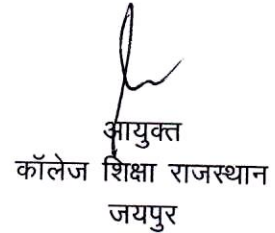 आयुक्त
कॉलेज शिक्षा राजस्थान
जयपुर